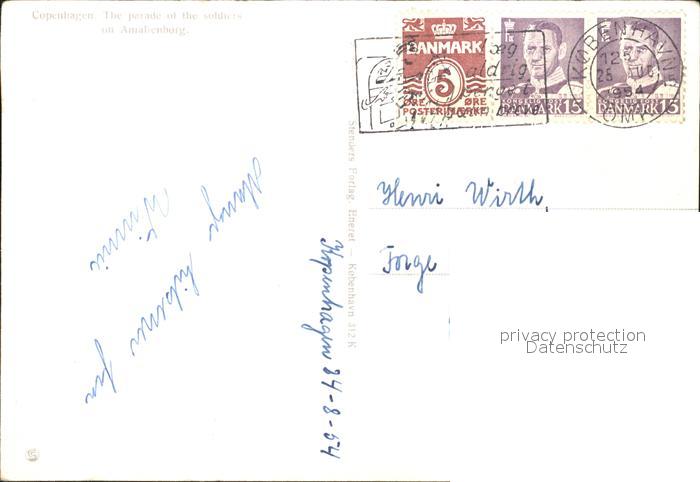 Copenhagen. The parade of the soldiers
on Amalienborg.
DANMARK
5
ØRE ØRE
POSTFRIMÆRKE
DANMARK 15
DANMARK 15
læg
aldrig
penge i
breve
KØBENHAVN
OMK.
1954
Stenders Forlag. Eneret — København 312 K
Henri Wirth,
Forge
Kopenhagen 24-8-54
Mange hilsner fra
privacy protection
Datenschutz